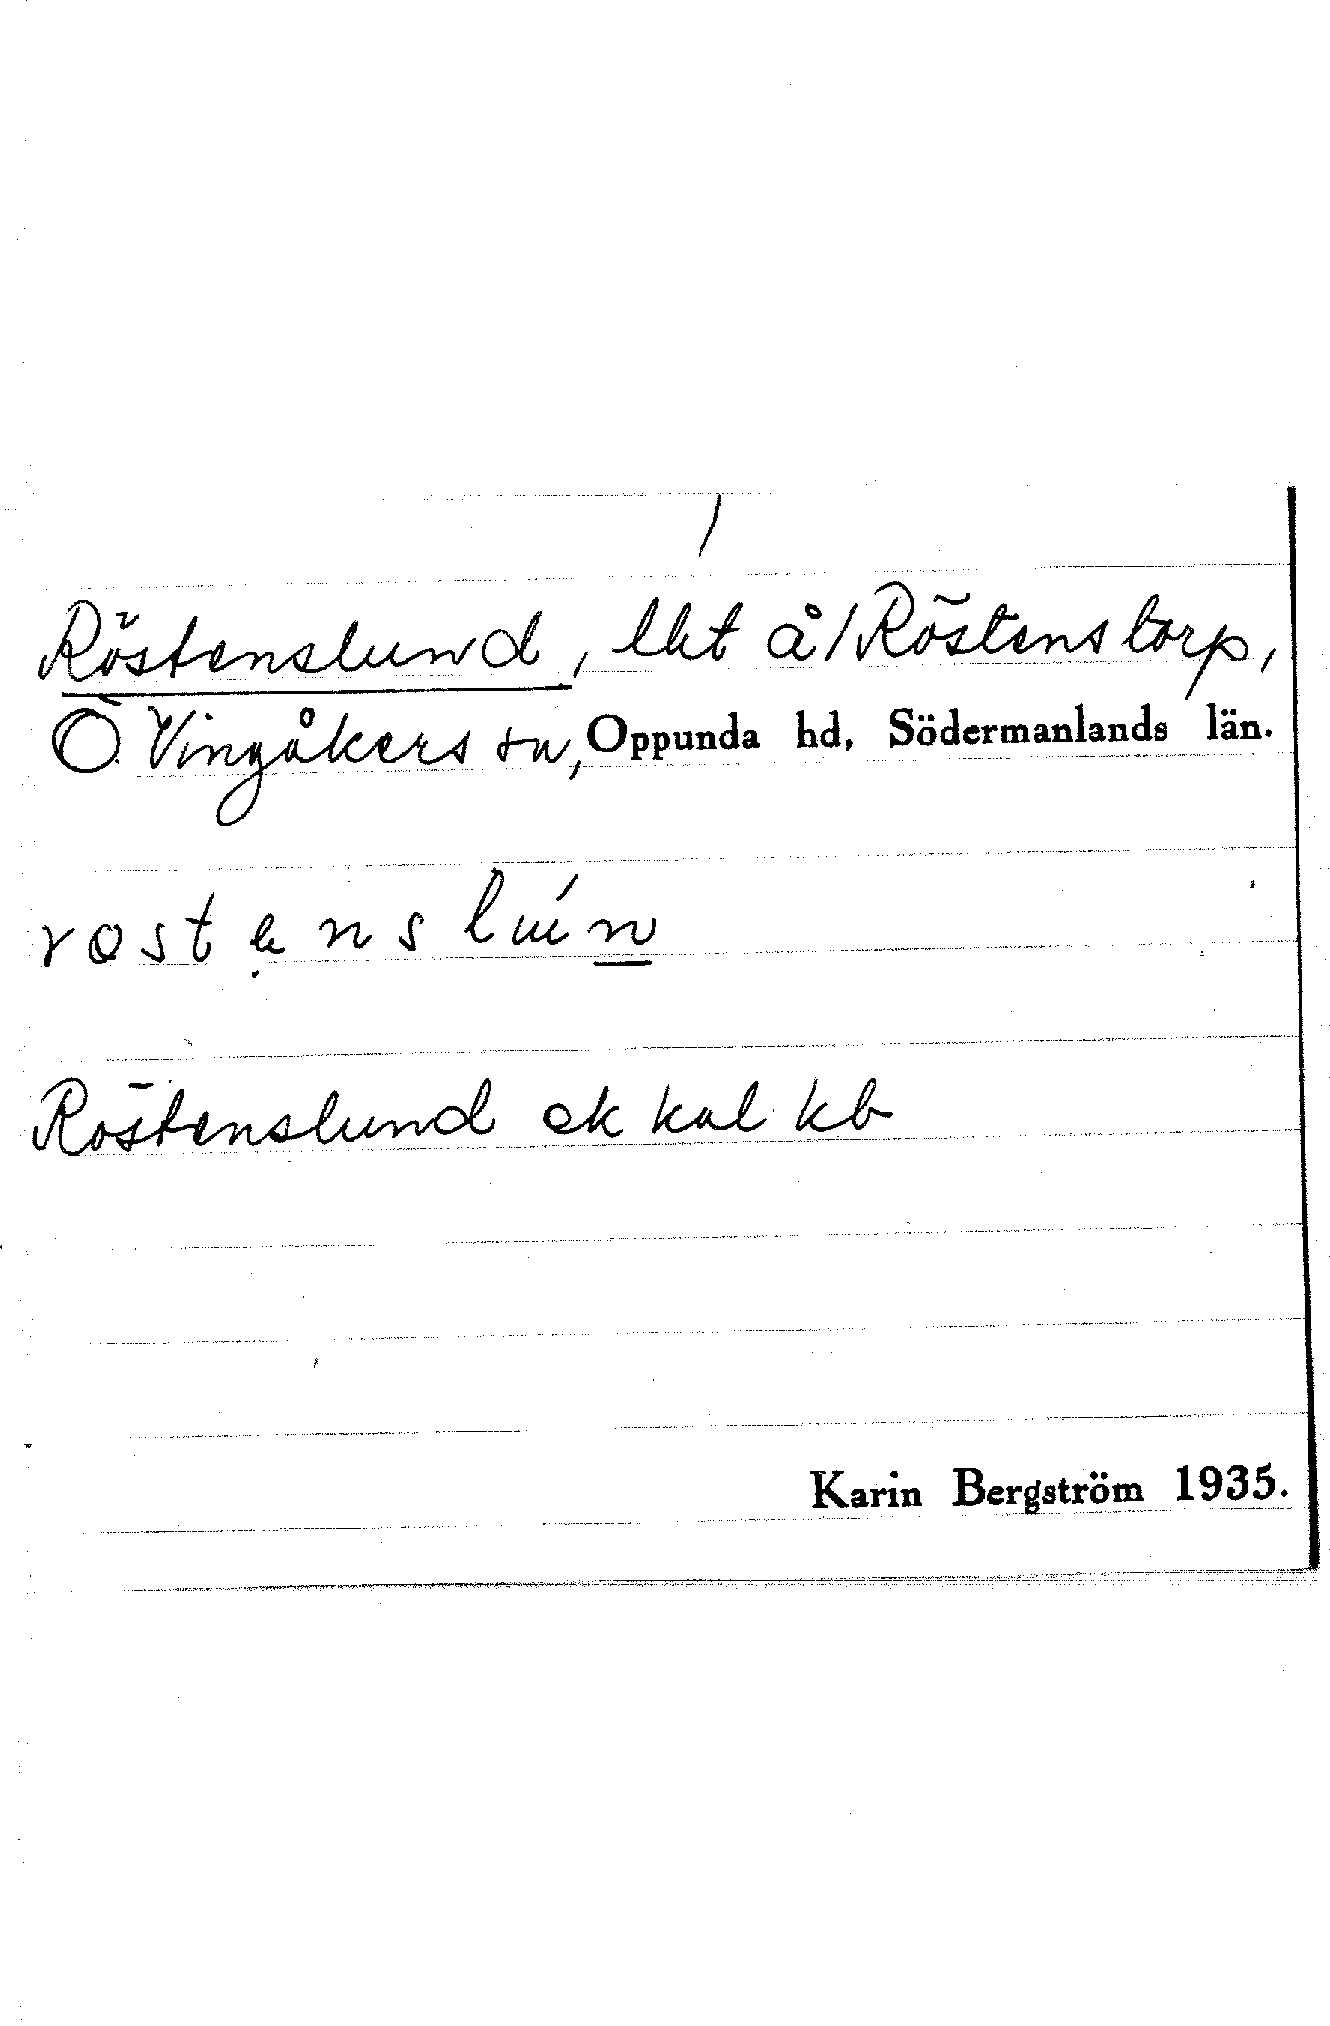 Röstenslund, lht å/Röstenstorp,
Ö. Vingåkers sn, Oppunda hd, Södermanlands län.
röstẹnslún
Röstenslund ek kal kb
Karin Bergström 1935.